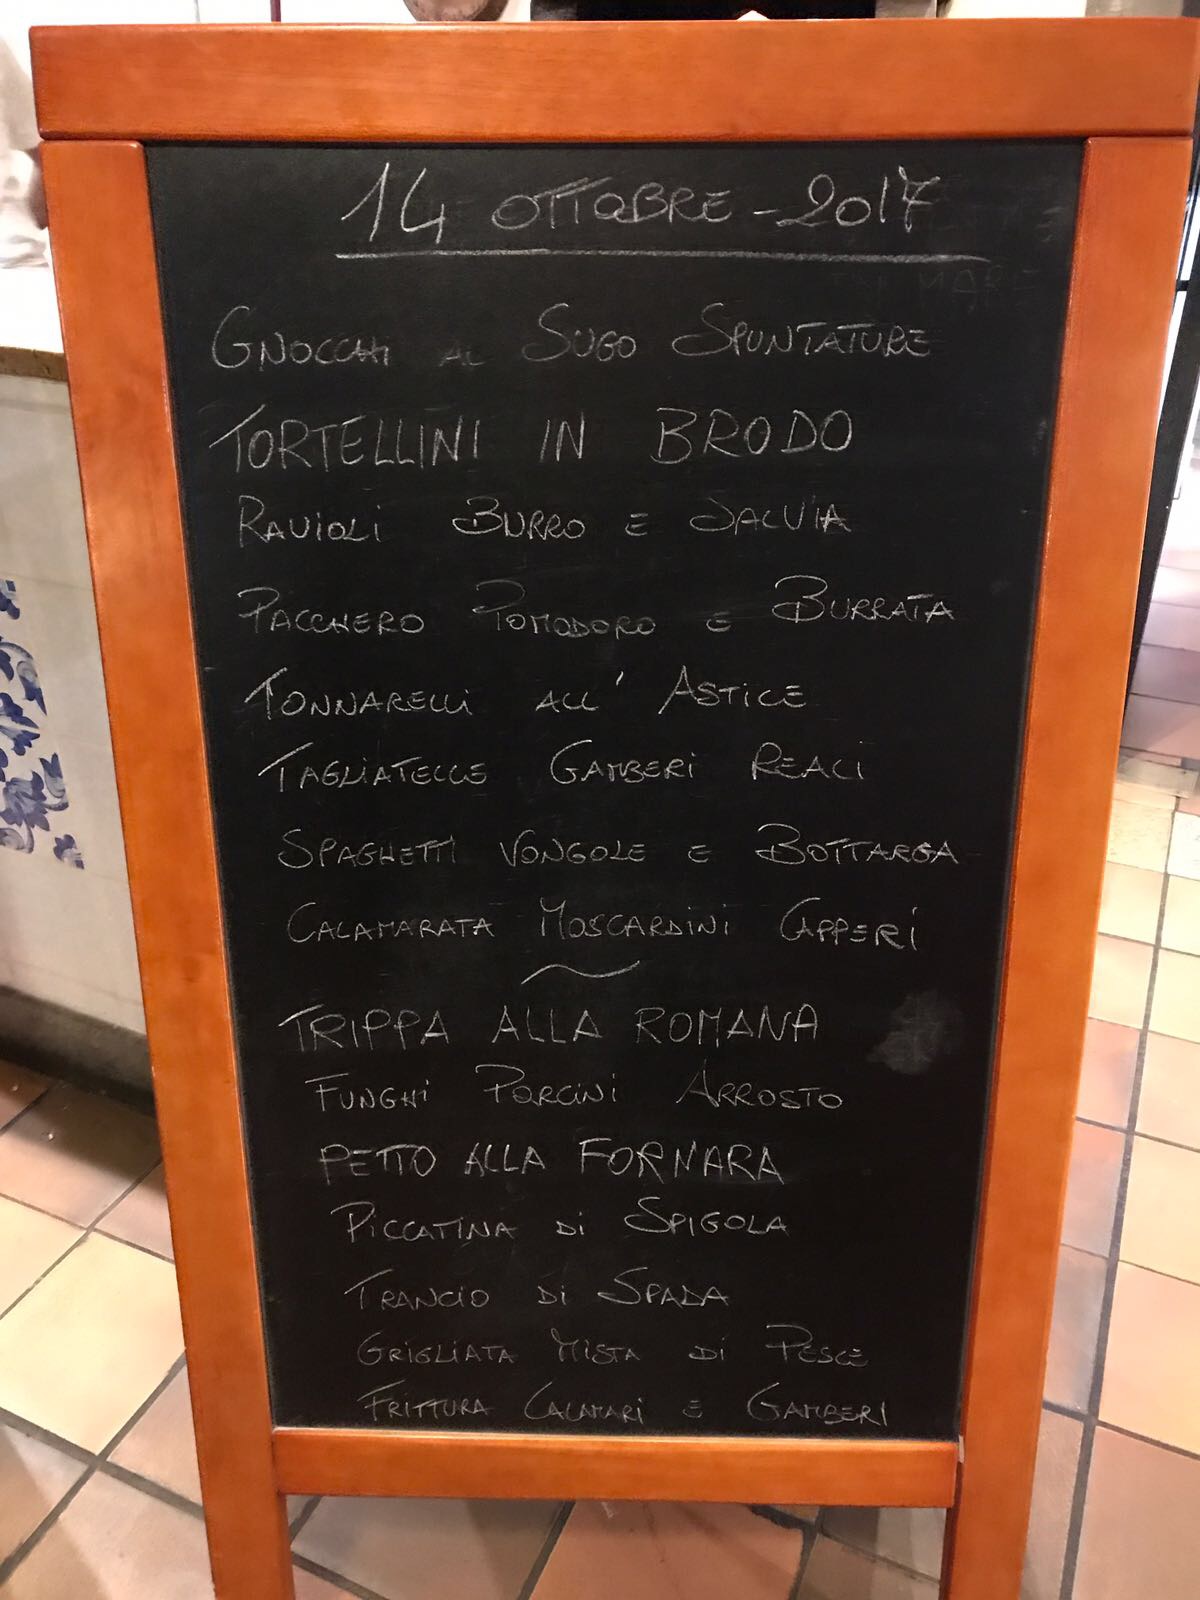 14 OTTOBRE - 2017
GNOCCHI AL SUGO SPUNTATURE
TORTELLINI IN BRODO
RAVIOLI BURRO E SALVIA
PACCHERO POMODORO E BURRATA
TONNARELLI ALL' ASTICE
TAGLIATELLE GAMBERI REALI
SPAGHETTI VONGOLE E BOTTARGA
CALAMARATA MOSCARDINI CAPPERI
TRIPPA ALLA ROMANA
FUNGHI PORCINI ARROSTO
PETTO ALLA FORNARA
PICCATINA DI SPIGOLA
TRANCIO DI SPADA
GRIGLIATA MISTA DI PESCE
FRITTURA CALAMARI E GAMBERI